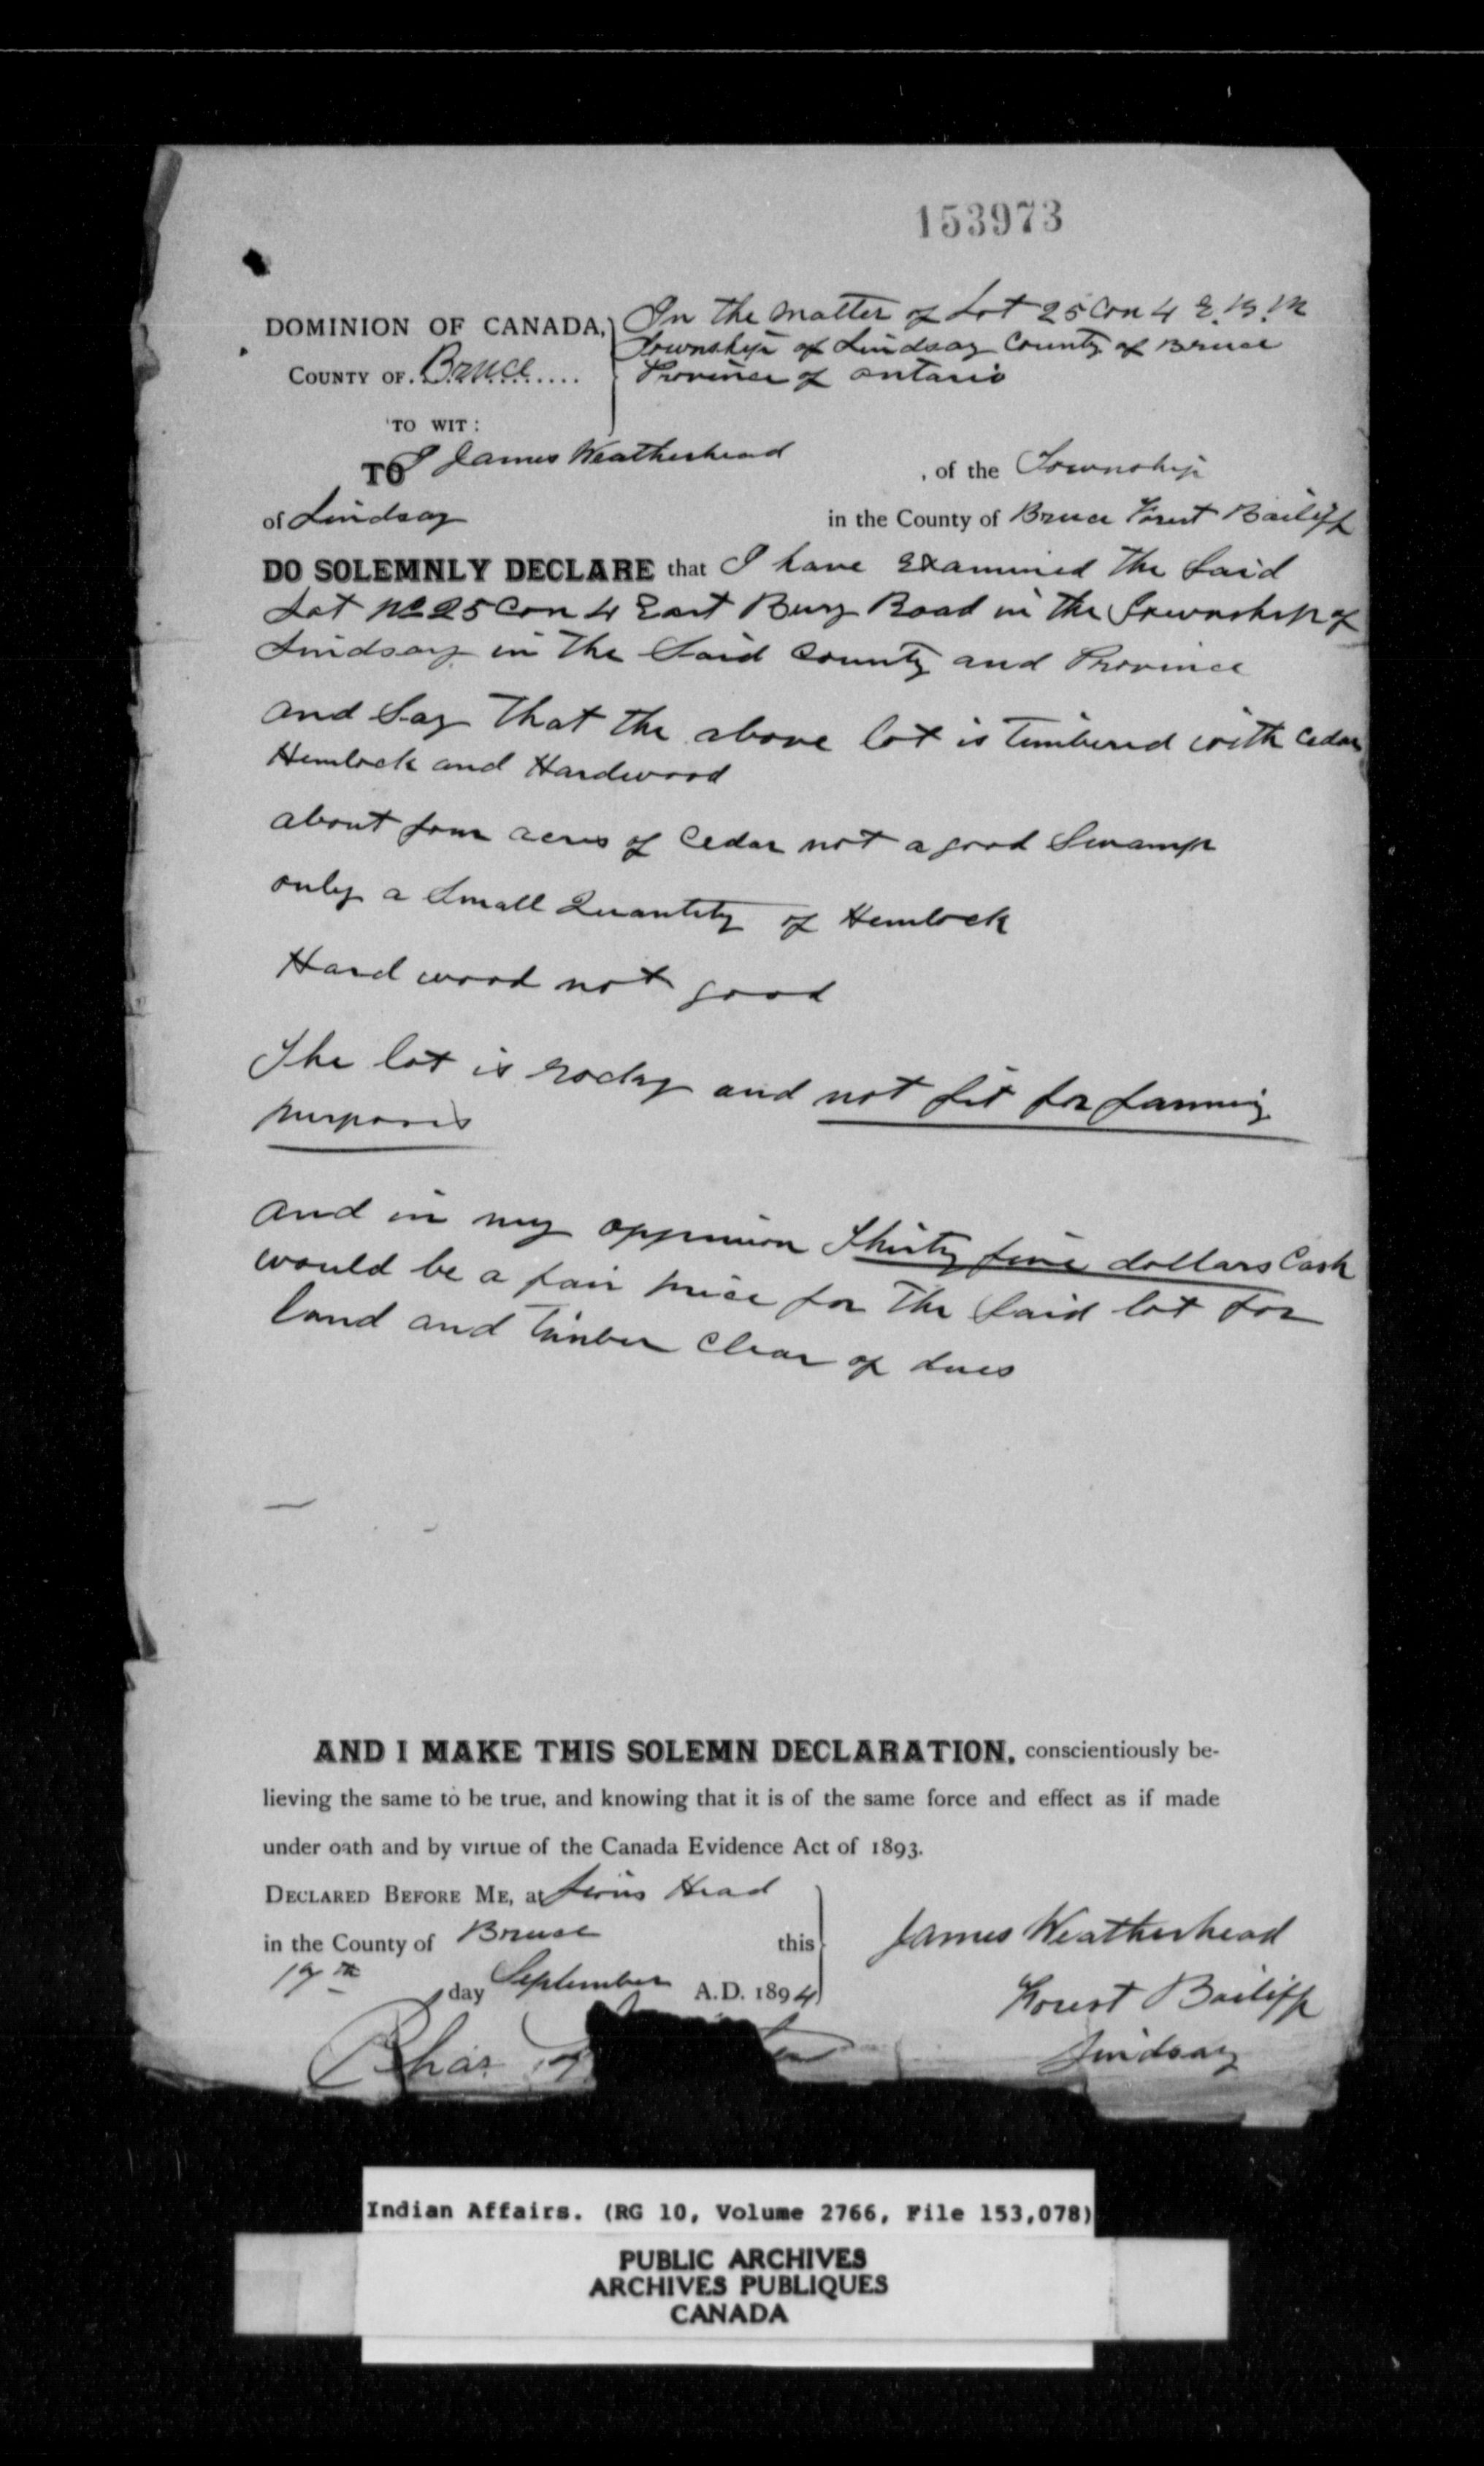 153973
DOMINION OF CANADA, In the matter of Lot 25 Con 4 E. B. R
Township of Lindsay County of Bruce
COUNTY OF Bruce Province of Ontario
TO WIT:
TO I James Weatherhead , of the Township
of Lindsay in the County of Bruce Forest Bailiff
DO SOLEMNLY DECLARE that I have Examined The Said
Lot No 25 Con 4 East Bury Road in the Township of
Lindsay in The Said County and Province
and Say That the above lot is Timbered with Cedar
Hemlock and Hardwood
about four acres of Cedar not a good Swamp
only a Small Quantity of Hemlock
Hard wood not good
The lot is rocky and not fit for farming
purposes
and in my oppinion Thirty five dollars Cash
would be a fair price for The Said lot for
land and Timber Clear of dues
AND I MAKE THIS SOLEMN DECLARATION, conscientiously be-
lieving the same to be true, and knowing that it is of the same force and effect as if made
under oath and by virtue of the Canada Evidence Act of 1893.
DECLARED BEFORE ME, at Lions Head
in the County of Bruce this James Weatherhead
17th day September A.D. 1894 Forest Bailiff
Chas Lindsay
Indian Affairs. (RG 10, Volume 2766, File 153,078)
PUBLIC ARCHIVES
ARCHIVES PUBLIQUES
CANADA